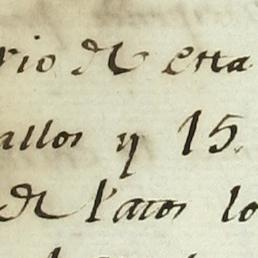 rio de esta
allos y 15
de Patos lo